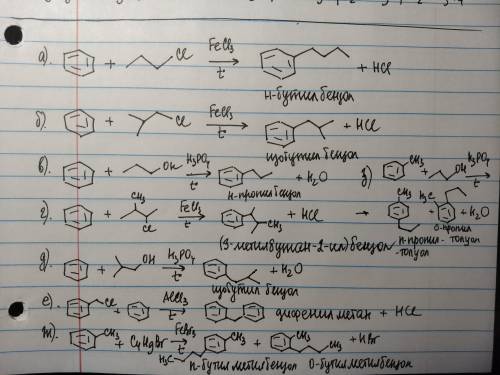 а). + Cl FeCl3 t° + HCl
н-бутилбензол
б). + Cl FeCl3 t° + HCl
изобутилбензол
в). + OH H3PO4 t° + H2O
н-пропилбензол
з) CH3 + OH H3PO4 t°
г). + CH3 Cl FeCl3 t° CH3 + HCl
(3-метилбутан-2-ил)бензол
CH3 + H3C + H2O
п-пропил-толуол
о-пропил-толуол
д). + OH H3PO4 t° + H2O
изобутилбензол
е). Cl + AlCl3 дифенилметан + HCl
ж). CH3 + C4H9Br FeBr3 t° CH3 + CH3 CH3 + HBr
H3C п-бутилметилбензол о-бутилметилбензол